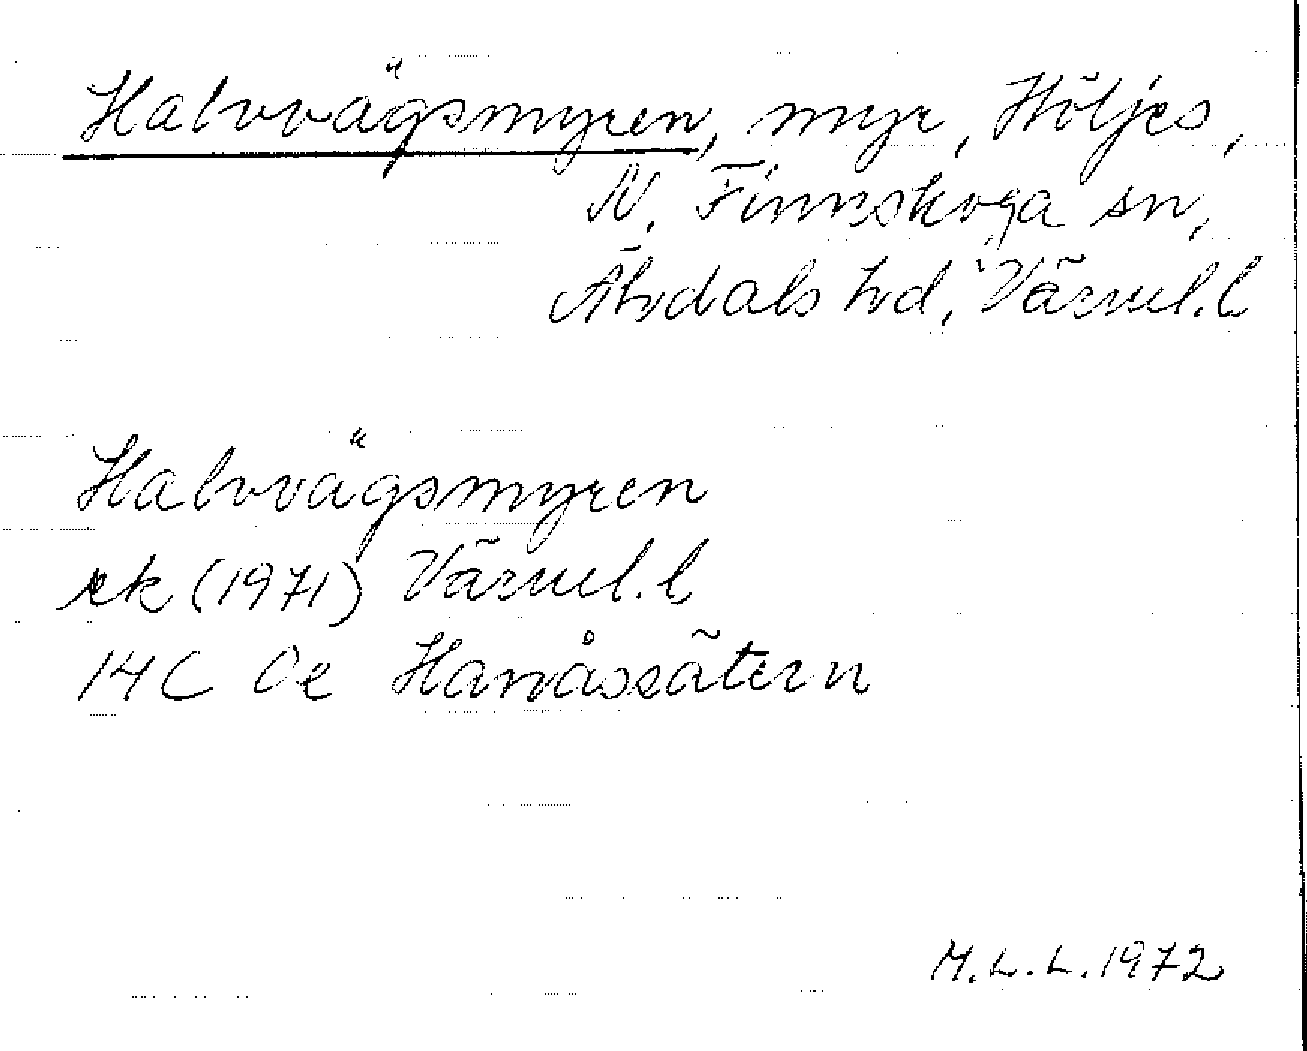 Halvvägsmyren, myr, Höljes,
N. Finnskoga sn,
Älvdals hd, Värml. l
Halvvägsmyren
ek (1971) Värml. l
14C 0e Havråssätern
M.L.L. 1972